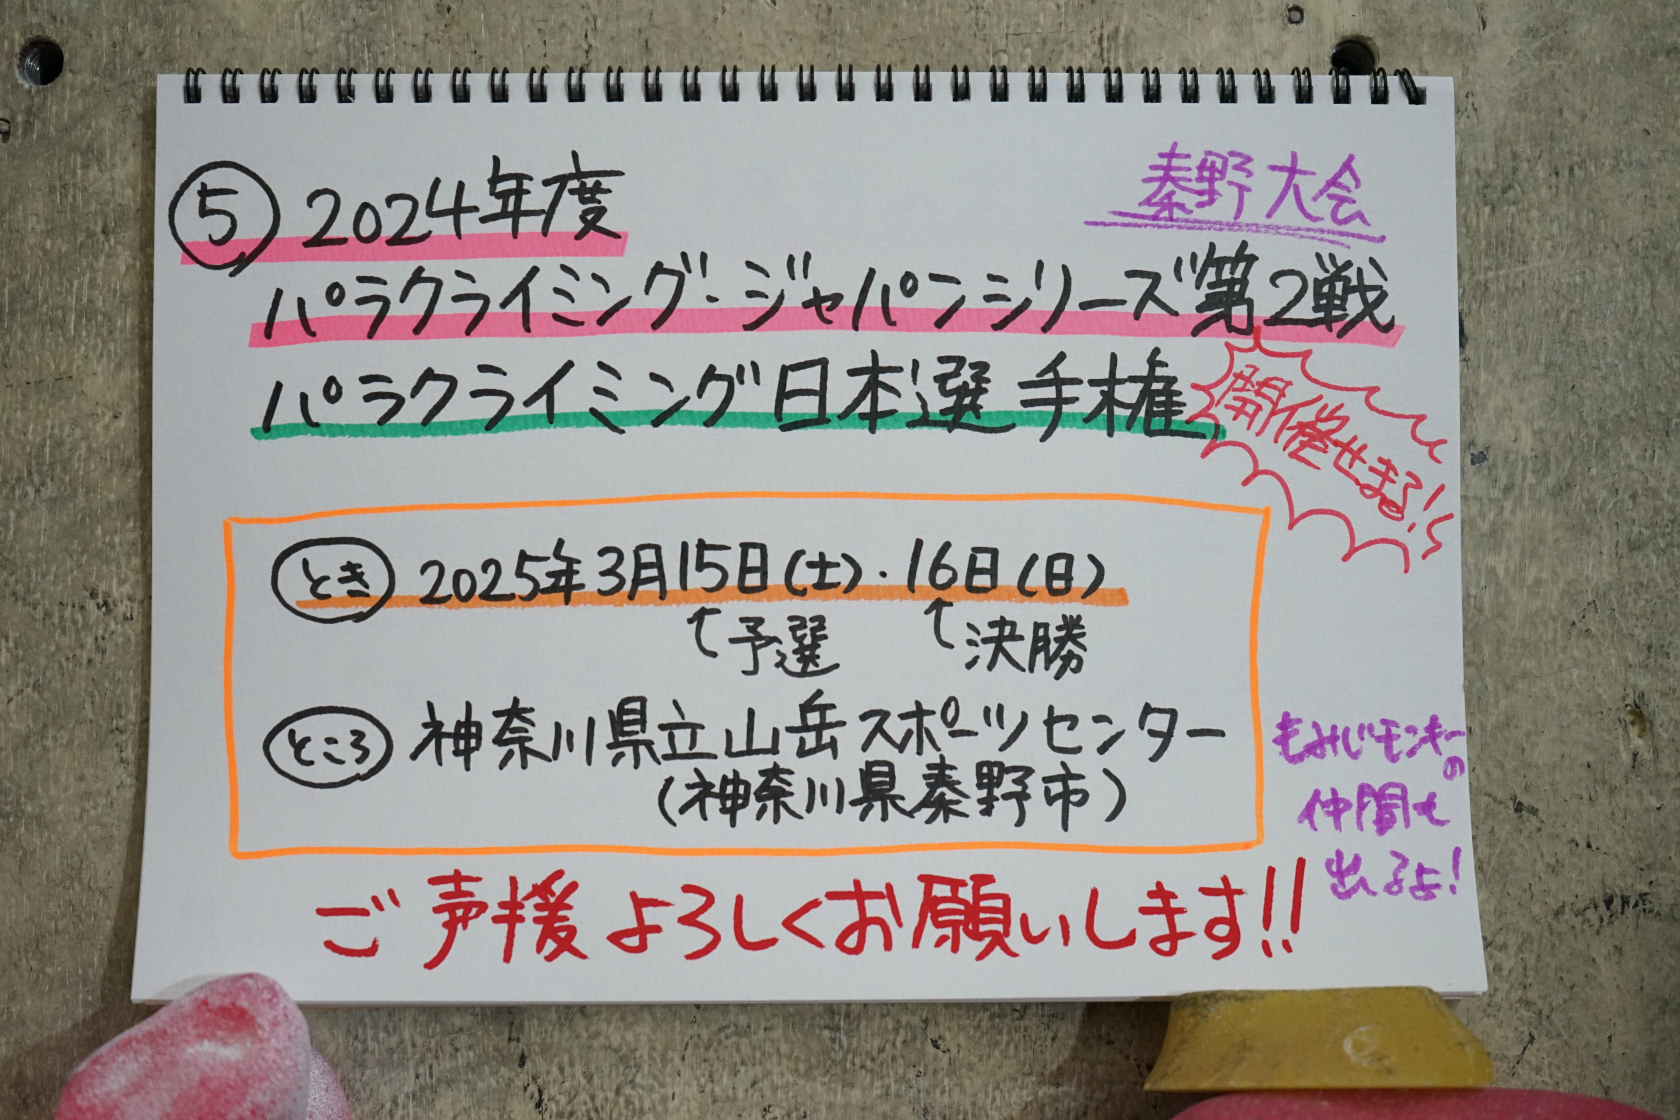 ⑤ 2024年度
秦野大会
パラクライミング・ジャパンシリーズ第2戦
パラクライミング日本選手権
開催せまる!
とき 2025年3月15日(土)・16日(日)
↑予選 ↑決勝
ところ 神奈川県立山岳スポーツセンター
(神奈川県秦野市)
もみじモンキー
の
仲間も
出るよ!
ご声援よろしくお願いします!!